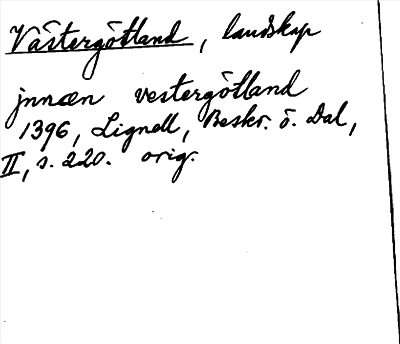 Västergötland, landskap
jnnæn vestergötland
1396, Lignell, Beskr. ö. Dal,
II, s. 220. orig.